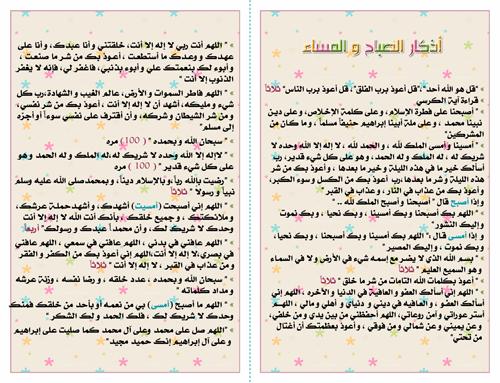 أذكار الصباح و المساء
" قل هو الله أحد "،" قل أعوذ برب الفلق"، قل أعوذ برب الناس" ثلاثاً
قراءة آية الكرسي
" أصبحنا على فطرة الإسلام، و على كلمة الإخلاص، و على دين
نبينا محمد ، و على ملة أبينا إبراهيم حنيفاً مسلماً ، و ما كان من
المشركين"
" أمسينا و أمسى الملك لله ، و الحمد لله ، لا إله إلا الله وحده لا
شريك له ، له الملك و له الحمد، وهو على كل شيء قدير، رب
أسألك خير ما في هذه الليلة و خير ما بعدها ، وأعوذ بك من شر
هذه الليلة و شر ما بعدها، رب أعوذ بك من الكسل و سوء الكبر،
و أعوذ بك من عذاب في النار ، و عذاب في القبر "
و إذا أصبح قال " أصبحنا و أصبح الملك لله ... "
" اللهم بك أصبحنا و بك أمسينا ، و بك نحيا ، و بك نموت
و إليك النشور "
و إذا أمسى قال " اللهم بك أمسينا و بك أصبحنا ، و بك نحيا ،
و بك نموت ، و إليك المصير "
" بسم الله الذي لا يضر مع إسمه شيء في الأرض و لا في السماء
و هو السميع العليم " ثلاثاً
" أعوذ بكلمات الله التامات من شر ما خلق " ثلاثاً
" اللهم إني أسألك العفو و العافية في الدنيا و الآخره ، اللهم إني
أسألك العفو ، و العافيه في ديني و دنياي و أهلي و مالي ، اللهم
أستر عوراتي و آمن روعاتي، اللهم أحفظني من بين يدي و من خلفي،
و عن يميني و عن شمالي و من فوقي ، و أعوذ بعظمتك أن أغتال
من تحتي"
" اللهم أنت ربي لا إله إلا أنت ، خلقتني و أنا عبدك، و أنا على
عهدك و وعدك ما أستطعت ، أعوذ بك من شر ما صنعت ،
و أبوء لك بنعمتك علي و أبوء بذنبي، فاغفر لي، فإنه لا يغفر
الذنوب إلا أنت "
" اللهم فاطر السموات و الأرض، عالم الغيب و الشهادة، رب كل
شيء و مليكه، أشهد أن لا إله إلا أنت ، أعوذ بك من شر نفسي،
و من شر الشيطان و شركه، و أن أقترف على نفسي سوءاً و أجره
إلى مسلم"
" سبحان الله و بحمده " ( 100 ) مره
" لا إله إلا الله وحده لا شريك له، له الملك و له الحمد و هو
على كل شيء قدير " ( 100 ) مره
" رضيت بالله رباً، و بالإسلام ديناً ، و بمحمد صلى الله عليه وسلم
نبياً و رسولا " ثلاثاً
" اللهم إني أصبحت ( أمسيت ) أشهدك ، و أشهد حملة عرشك،
و ملائكتك ، و جميع خلقك ، بأنك أنت الله لا إله إلا أنت
وحدك لا شريك لك ، و أن محمداً عبدك و رسولك" أربعاً
" اللهم عافني في بدني ، اللهم عافني في سمعي ، اللهم عافني
في بصري، لا إله إلا أنت، اللهم إني أعوذ بك من الكفر و الفقر
و من عذاب في القبر ، لا إله إلا أنت " ثلاثاً
" سبحان الله و بحمده ، عدد خلقه ، و رضا نفسه ، و زنة عرشه
و مداد كلماته "
" اللهم ما أصبح ( أمسى ) بي من نعمة، أو بأحد من خلقك فمنك
وحدك لا شريك لك ، فلك الحمد و لك الشكر "
" اللهم صل على محمد و على آل محمد كما صليت على إبراهيم
و على آل إبراهيم إنك حميد مجيد"